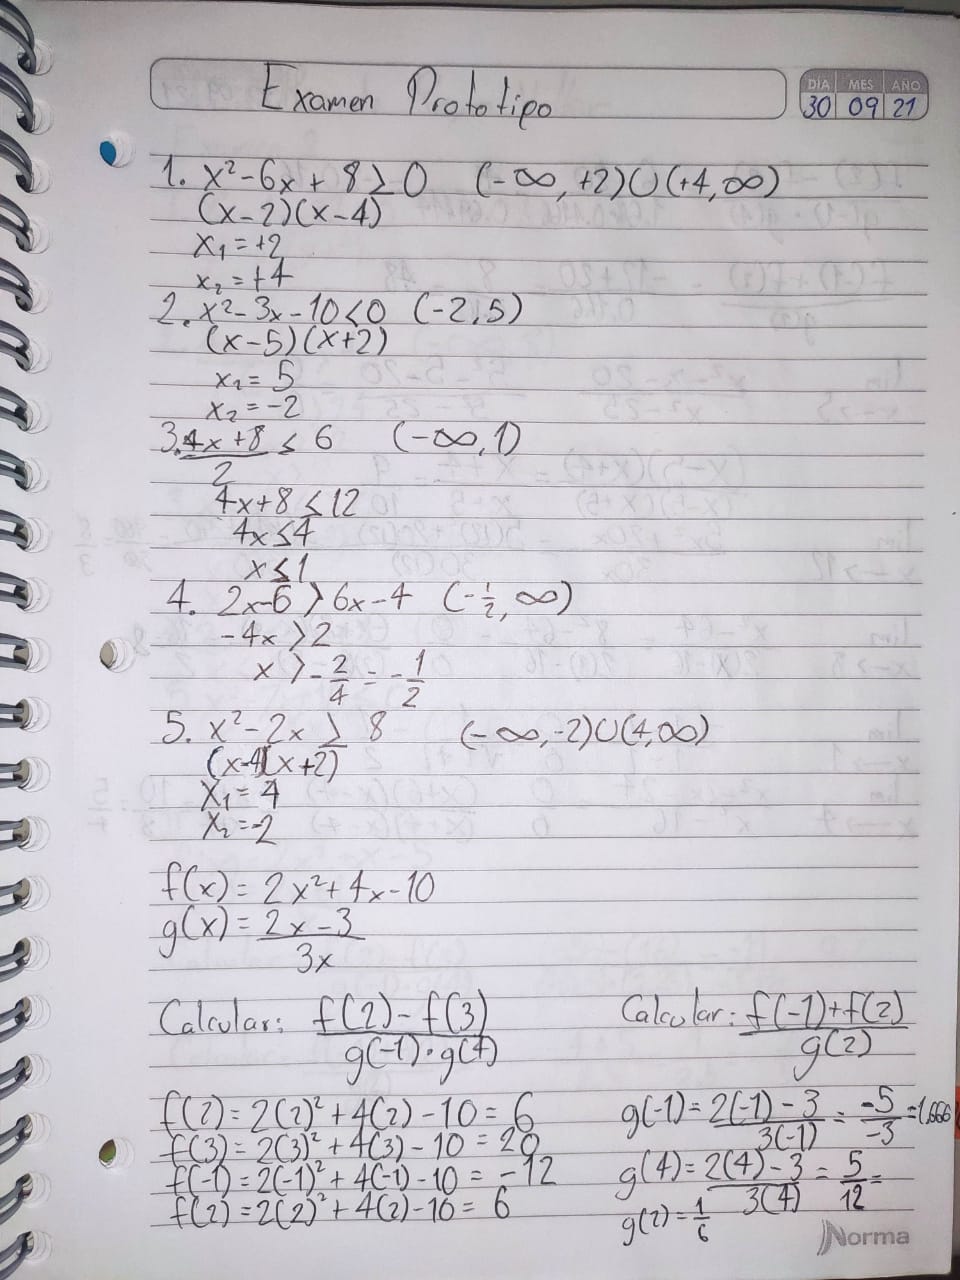 Examen Prototipo
DÍA MES AÑO
30 09 21
1. x²-6x+8≥0 (-∞,+2)∪(+4,∞)
(x-2)(x-4)
x₁=+2
x₂=+4
2. x²-3x-10<0 (-2,5)
(x-5)(x+2)
x₁=5
x₂=-2
3. 4x+8/2 ≤ 6 (-∞,1)
4x+8≤12
4x≤4
x≤1
4. 2x-6>6x-4 (-1/2,∞)
-4x>2
x>-2/4=-1/2
5. x²-2x≥8 (-∞,-2)∪(4,∞)
(x-4)(x+2)
x₁=4
x₂=-2
f(x)=2x²+4x-10
g(x)=2x-3/3x
Calcular: f(2)-f(3)/g(-1)·g(4) Calcular: f(-1)+f(2)/g(2)
f(2)=2(2)²+4(2)-10=6 g(-1)=2(-1)-3/3(-1)=-5/-3=1,666
f(3)=2(3)²+4(3)-10=20
f(-1)=2(-1)²+4(-1)-10=-12 g(4)=2(4)-3/3(4)=5/12=
f(2)=2(2)²+4(2)-10=6 g(2)=1/6
Norma